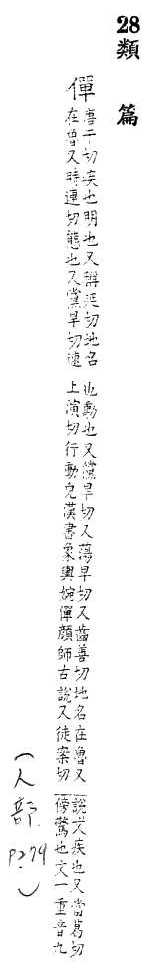 28 類篇
僤
唐干切疾也明也又稱延切地名
在魯又時連切態也又黨旱切速
也動也又儻旱切又蕩旱切又齒善切地名在魯又
上演切行動皃漢書象輿婉僤顏師古說又徒案切
說文疾也又當葛切
傍驚也文一重音九
(人部)